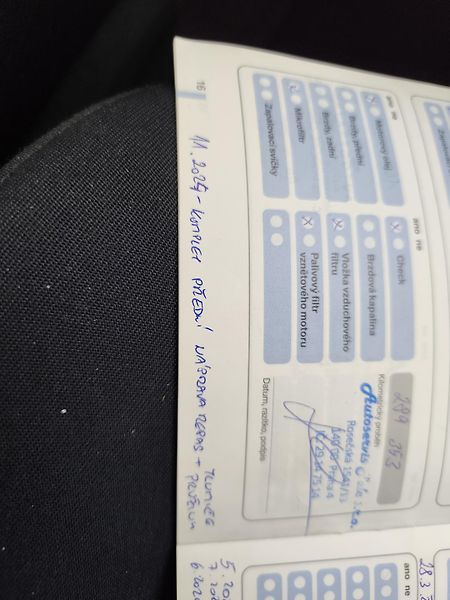 ano ne
Motorový olej
Brzdy, přední
Brzdy, zadní
Mikrofiltr
Zapalovací svíčky
ano ne
Check
Brzdová kapalina
Vložka vzduchového
filtru
Palivový filtr
vznětového motoru
Kilometrický průběh
289 353
Autoservis
s.r.o.
140 00 Praha 4
Datum, razítko, podpis
16
11. 2024 - KOMPLET PŘEDNÍ NÁPRAVA REPAS + TLUMIČE
PRUŽINY
ano ne
28.3.
5.20
7.20
6.202